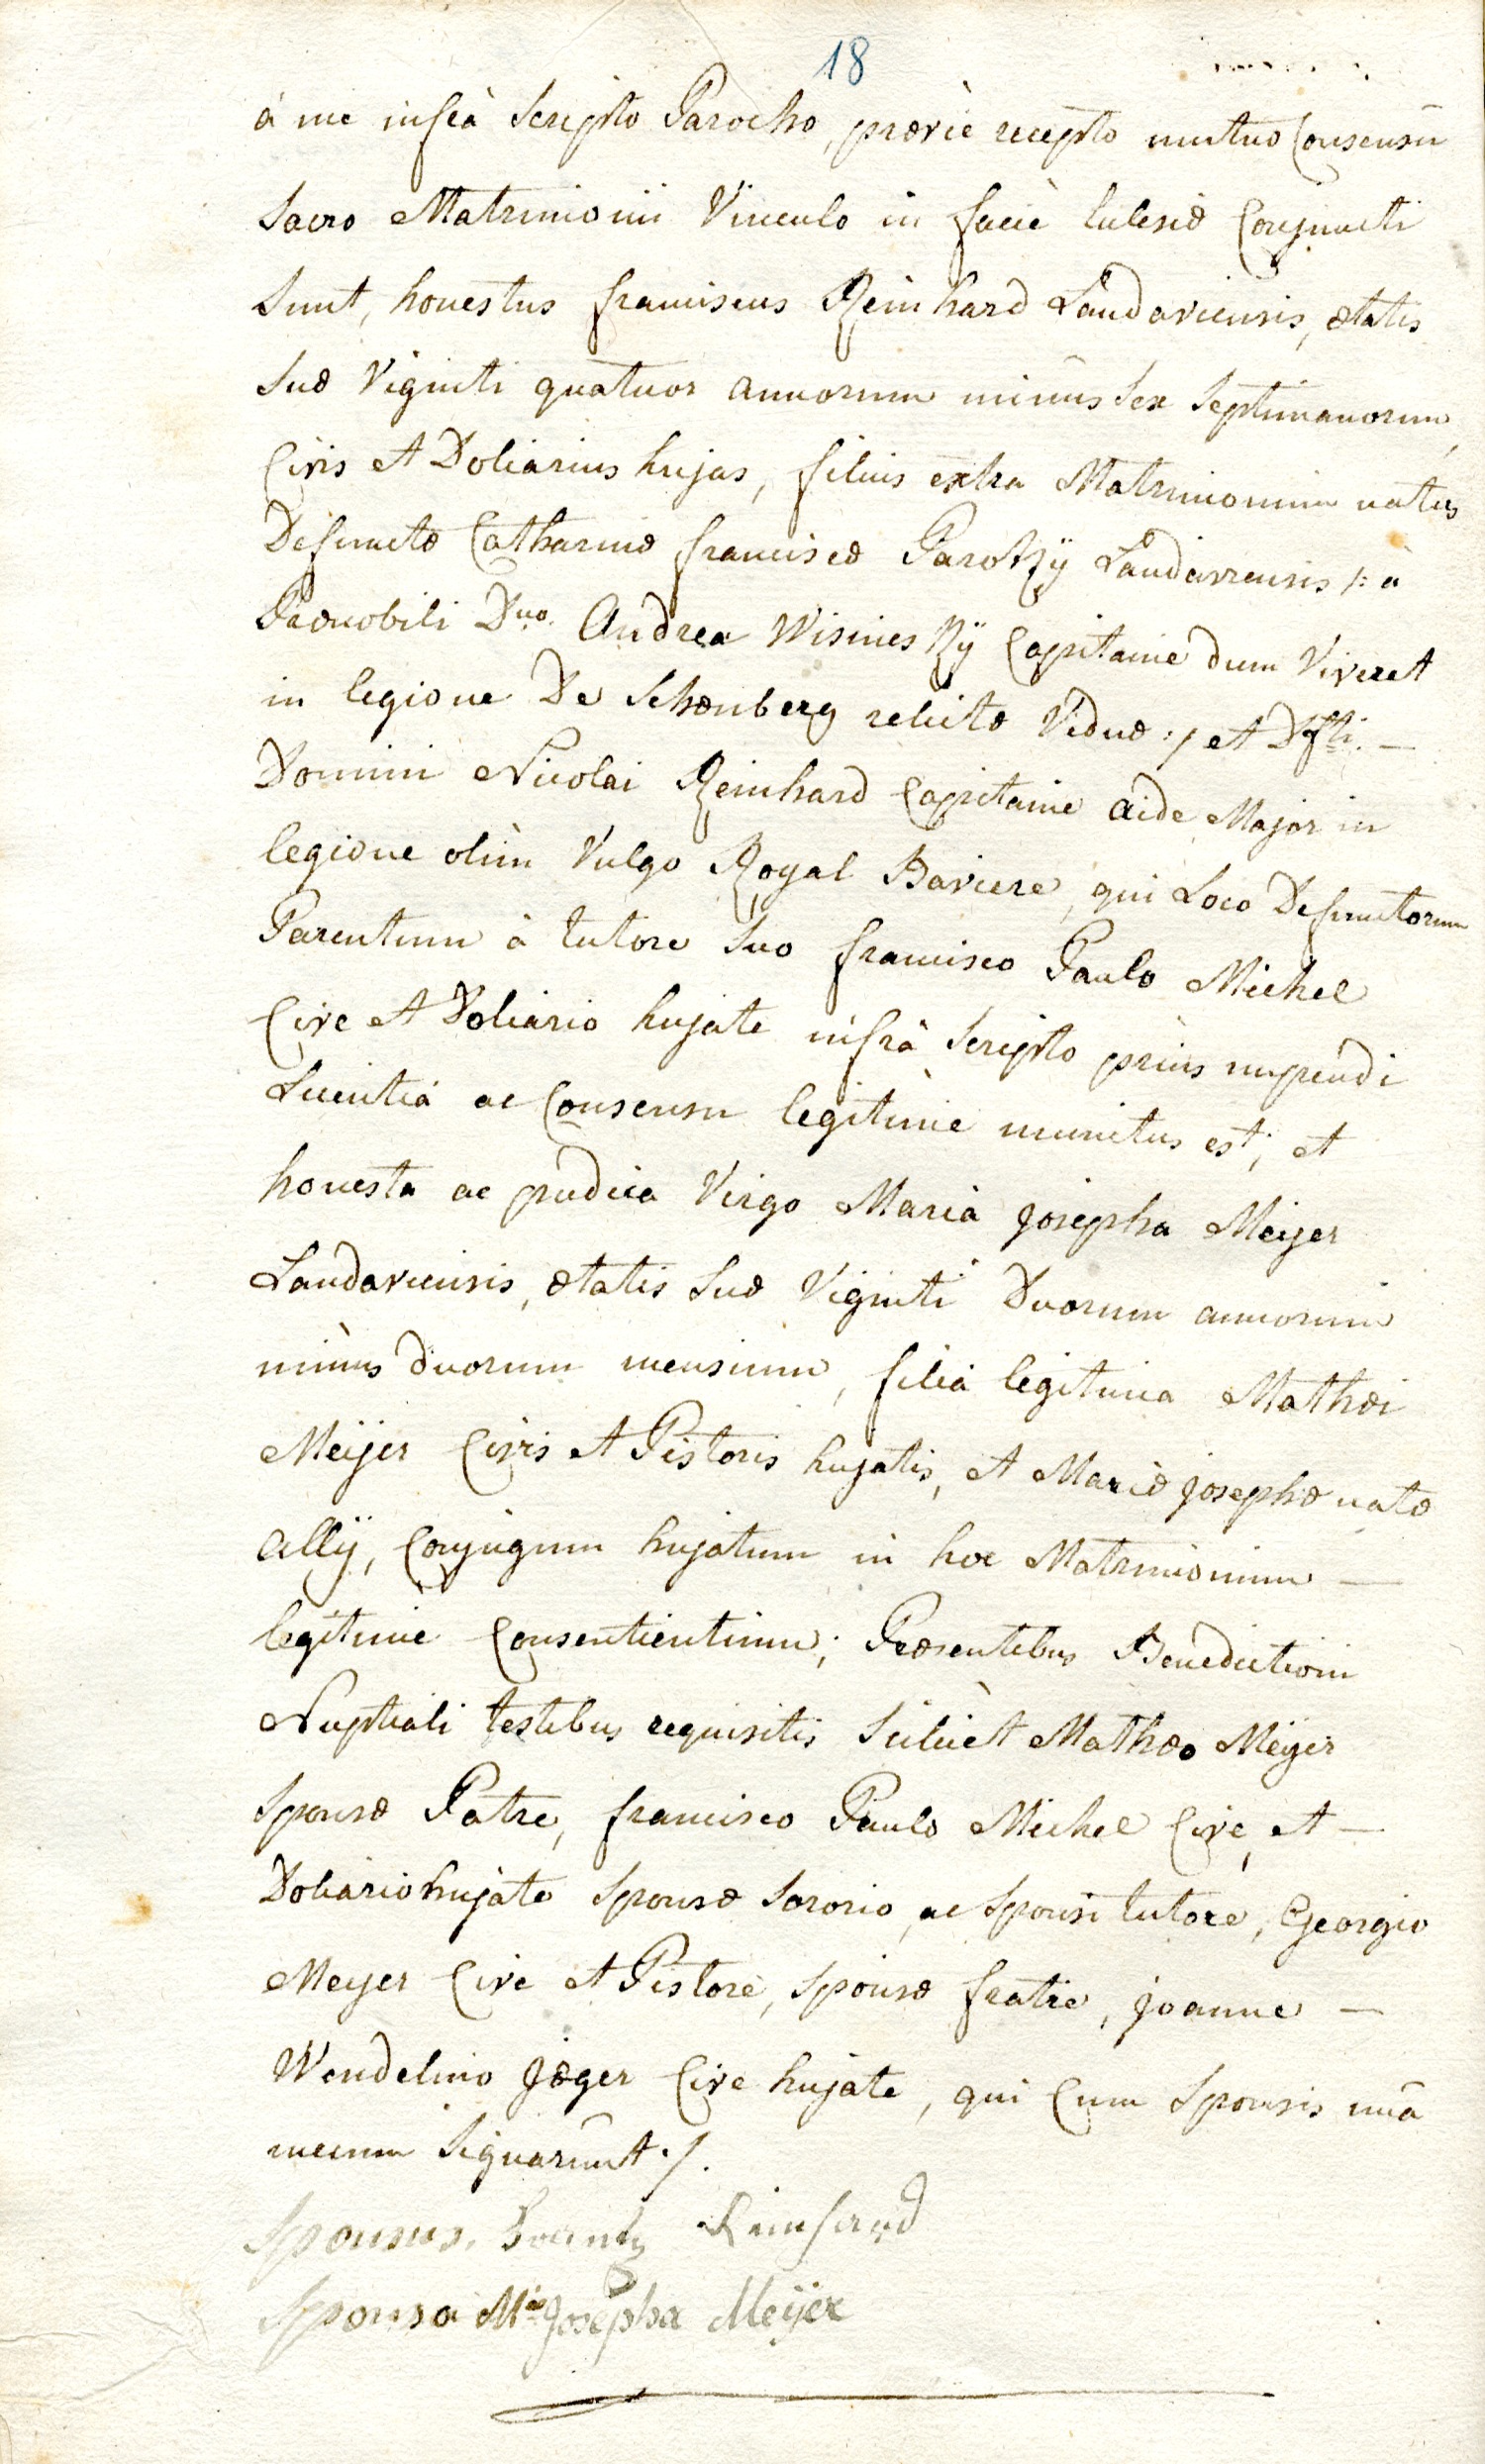 18
à me infrà Scripto Parocho, præviè recepto mutuo Consensu
Sacro Matrimonii Vinculo in faciè Ecclesiæ Conjuncti
Sunt, honestus franciscus Reinhard Landaviensis, ætatis
Suæ Viginti quatuor annorum minùs Sex Septimanorum,
Civis et Doliarius hujas, filius extra Matrimonium natus
Defunctæ Catharinæ franciscæ Parotzÿ Landaviensis /: à
Prænobili Dno. Andrea Wisniesky Capitaine dum Viveret
in legione De Schœnberg relictæ Viduæ :/ et Dfti. —
Domini Nicolai Reinhard Capitaine aide Major in
legione olìm Vulgo Royal Baviere, qui Loco Defunctorum
Parentum à tutore Suo francisco Paulo Michel
Cive et Doliario hujate infrà Scripto priùs nupendi
Licentiâ ac Consensu legitimè munitus est; et
honesta ac pudica Virgo Maria Josepha Meÿer
Landaviensis, ætatis Suæ Viginti Duorum annorum
minùs duorum mensium, filia legitima Mathæi
Meÿer Civis et Pistoris hujatis, et Mariæ Josephæ natæ
Allÿ, Conjugum hujatum in hoc Matrimonium —
legitimè Consentientium; Præsentibus Benedictioni
Nuptiali testibus requisitis Scilicèt Mathæo Meÿer
Sponsæ Patre, francisco Paulo Michel Cive, et —
Doliario hujate Sponsæ Sororio, ac Sponsi tutore, Georgio
Meyer Cive et Pistore, Sponsæ fratre, Joanne —
Wendelino Jæger Cive hujate, qui Cum Sponsis unâ
mecum Signarunt ./.
Sponsus. Frantz Reinhard
Sponsa Mia Josepha Meÿer